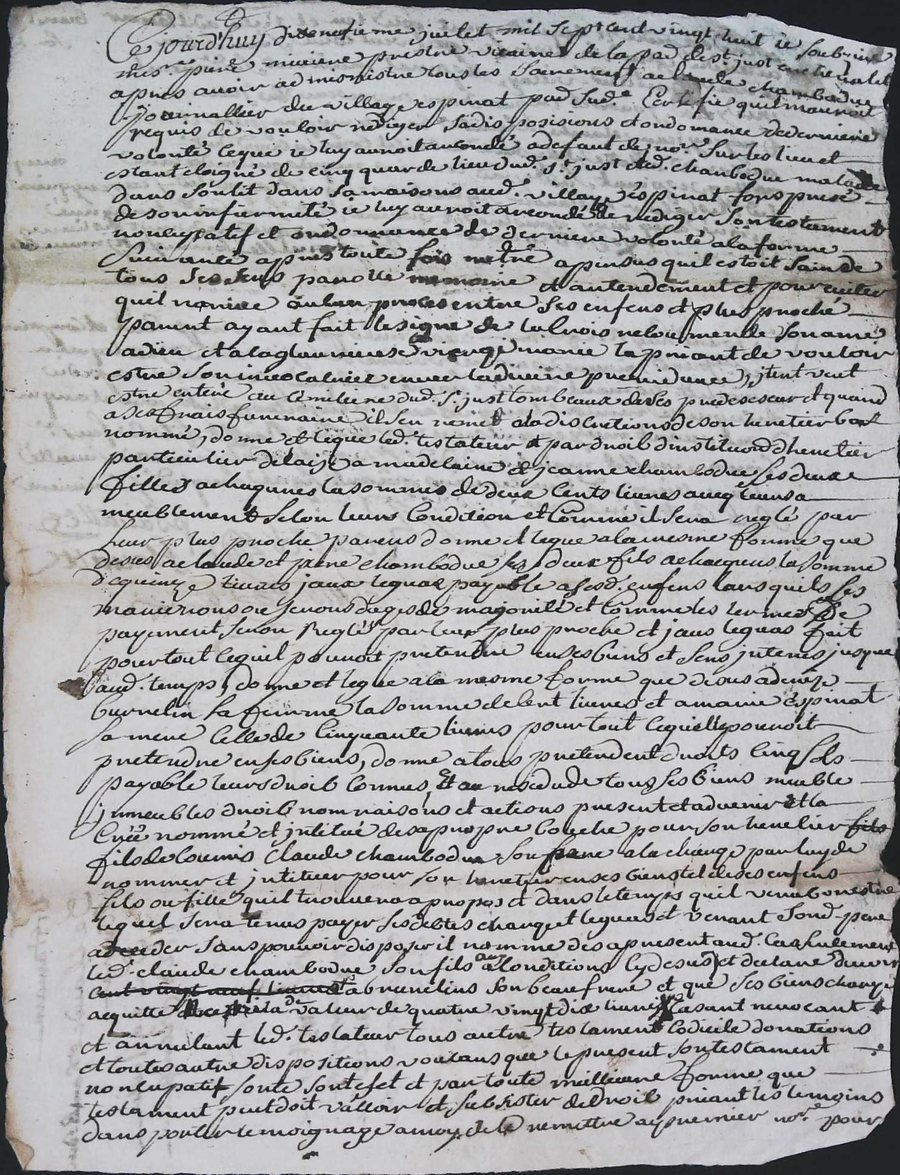 Ce jourd'huy dixneufieme juillet mil sept cent vingt huit ie soubsigne
mes.re piere prestre vicaire de la par. de st just en chevalet
apres avoir admenistre tous les sacremens a claude chambodue
journallier du village espinat par. sud.e Certifie quil mauroit
requis de vouloir rediger sa dis posisions et ordonnance de derniere
volonté ceque ie luy aurois acordé a defaut de no.re sur les lieu et
estant eloigné de cinq quar de lieu dud. st just led. chambodue malade
dans son lit dans sa maisons aud. village d'espinat fors presé
de son infirmeté ie luy aurois acordé de rediger son testament
noncupatif et ordonnance de derniere volonté a la forme
suivante apres toute fois metre apersus quil estoit sain de
tous ses sens parolle memoire et antendement et pour eviter
quil narive aucun proces entre ses enfens et plus proche
parent ayant fait le signe de la Croix recommende son ame
a dieu et a la glorieuse vierge marie la priant de vouloir
estre son intercalrice enver la divine , jtent veut
estre enteré au Cimetiere dud. st just tombeaux de ses predeseseur et quand
a ses frais funeraire il sen remet a la discretions de son heretier bas
nommé, donne et legue led. testateur par droit d'institutiond heretier
particulier de laisse a madelaine et jeanne chambodue ses deux
filles a chaqunes la somme de deux cents livres aveq leurs a
meublement selon leurs Condition et Comme il sera reglé par
leur plus proche parens donne et legue a la mesme forme que
desus a claude et piere chambodue ses deux fils a chacquns la somme
livres jaux leguas payable a sesd. enfens lors quils se
marieronsou seronsdages de majorité et Comme les termes de
payement seron reglés par leur plus proche et jaux leguas fait
pour tout cequil pouroit pretendre en ses biens et sens interes jusque
aud. temps, donne et legue a la mesme forme que desus a
burnelin sa femme la somme de Cent livres et a marie espinat
sa mere Celle de Cinquante livres pour tout cequelle pouroit
pretendre en ses biens, donne a tous pretendent droits Cinq sols
payable leurs droit Connus, Et au residu de tous ses biens meuble
jmmeubles droits nom raisons et actions present et advenir Et la
Creé nommé et jntitué de sa propre bouche pour son heretier fils
fils de Coumis Claude chambodue son frere a la charge par luy de
nommer et jntituer pour son heretier en ses biens tel de ses enfens
fils ou fille quil trouvera apropos et dans le temps quil verra bon estre
lequel sera tenus payer ses debtes charge et leguas et venant sond. pere
a deceder sans pouvoir disposer il nomme des apresent aud. Cas seulement
led. claude chambodue son fils aux Conditions Cy desus et declare devoir
cent vingt neuf livres a burnelins son beau frere et que ses biens charge
acquitté la valeur de quatre vingt dix livres Casant revocant
et annulent led. testateur tous autre testament Codicile donations
et toutes autre dispositions voulans que le present son testament
noncupatif sorte son efet et par toute meillieure forme que
testament puet doit valloir et subsister de droit priant les temoins
dans porter temoignage a moy de le remettre au premier no.re pour